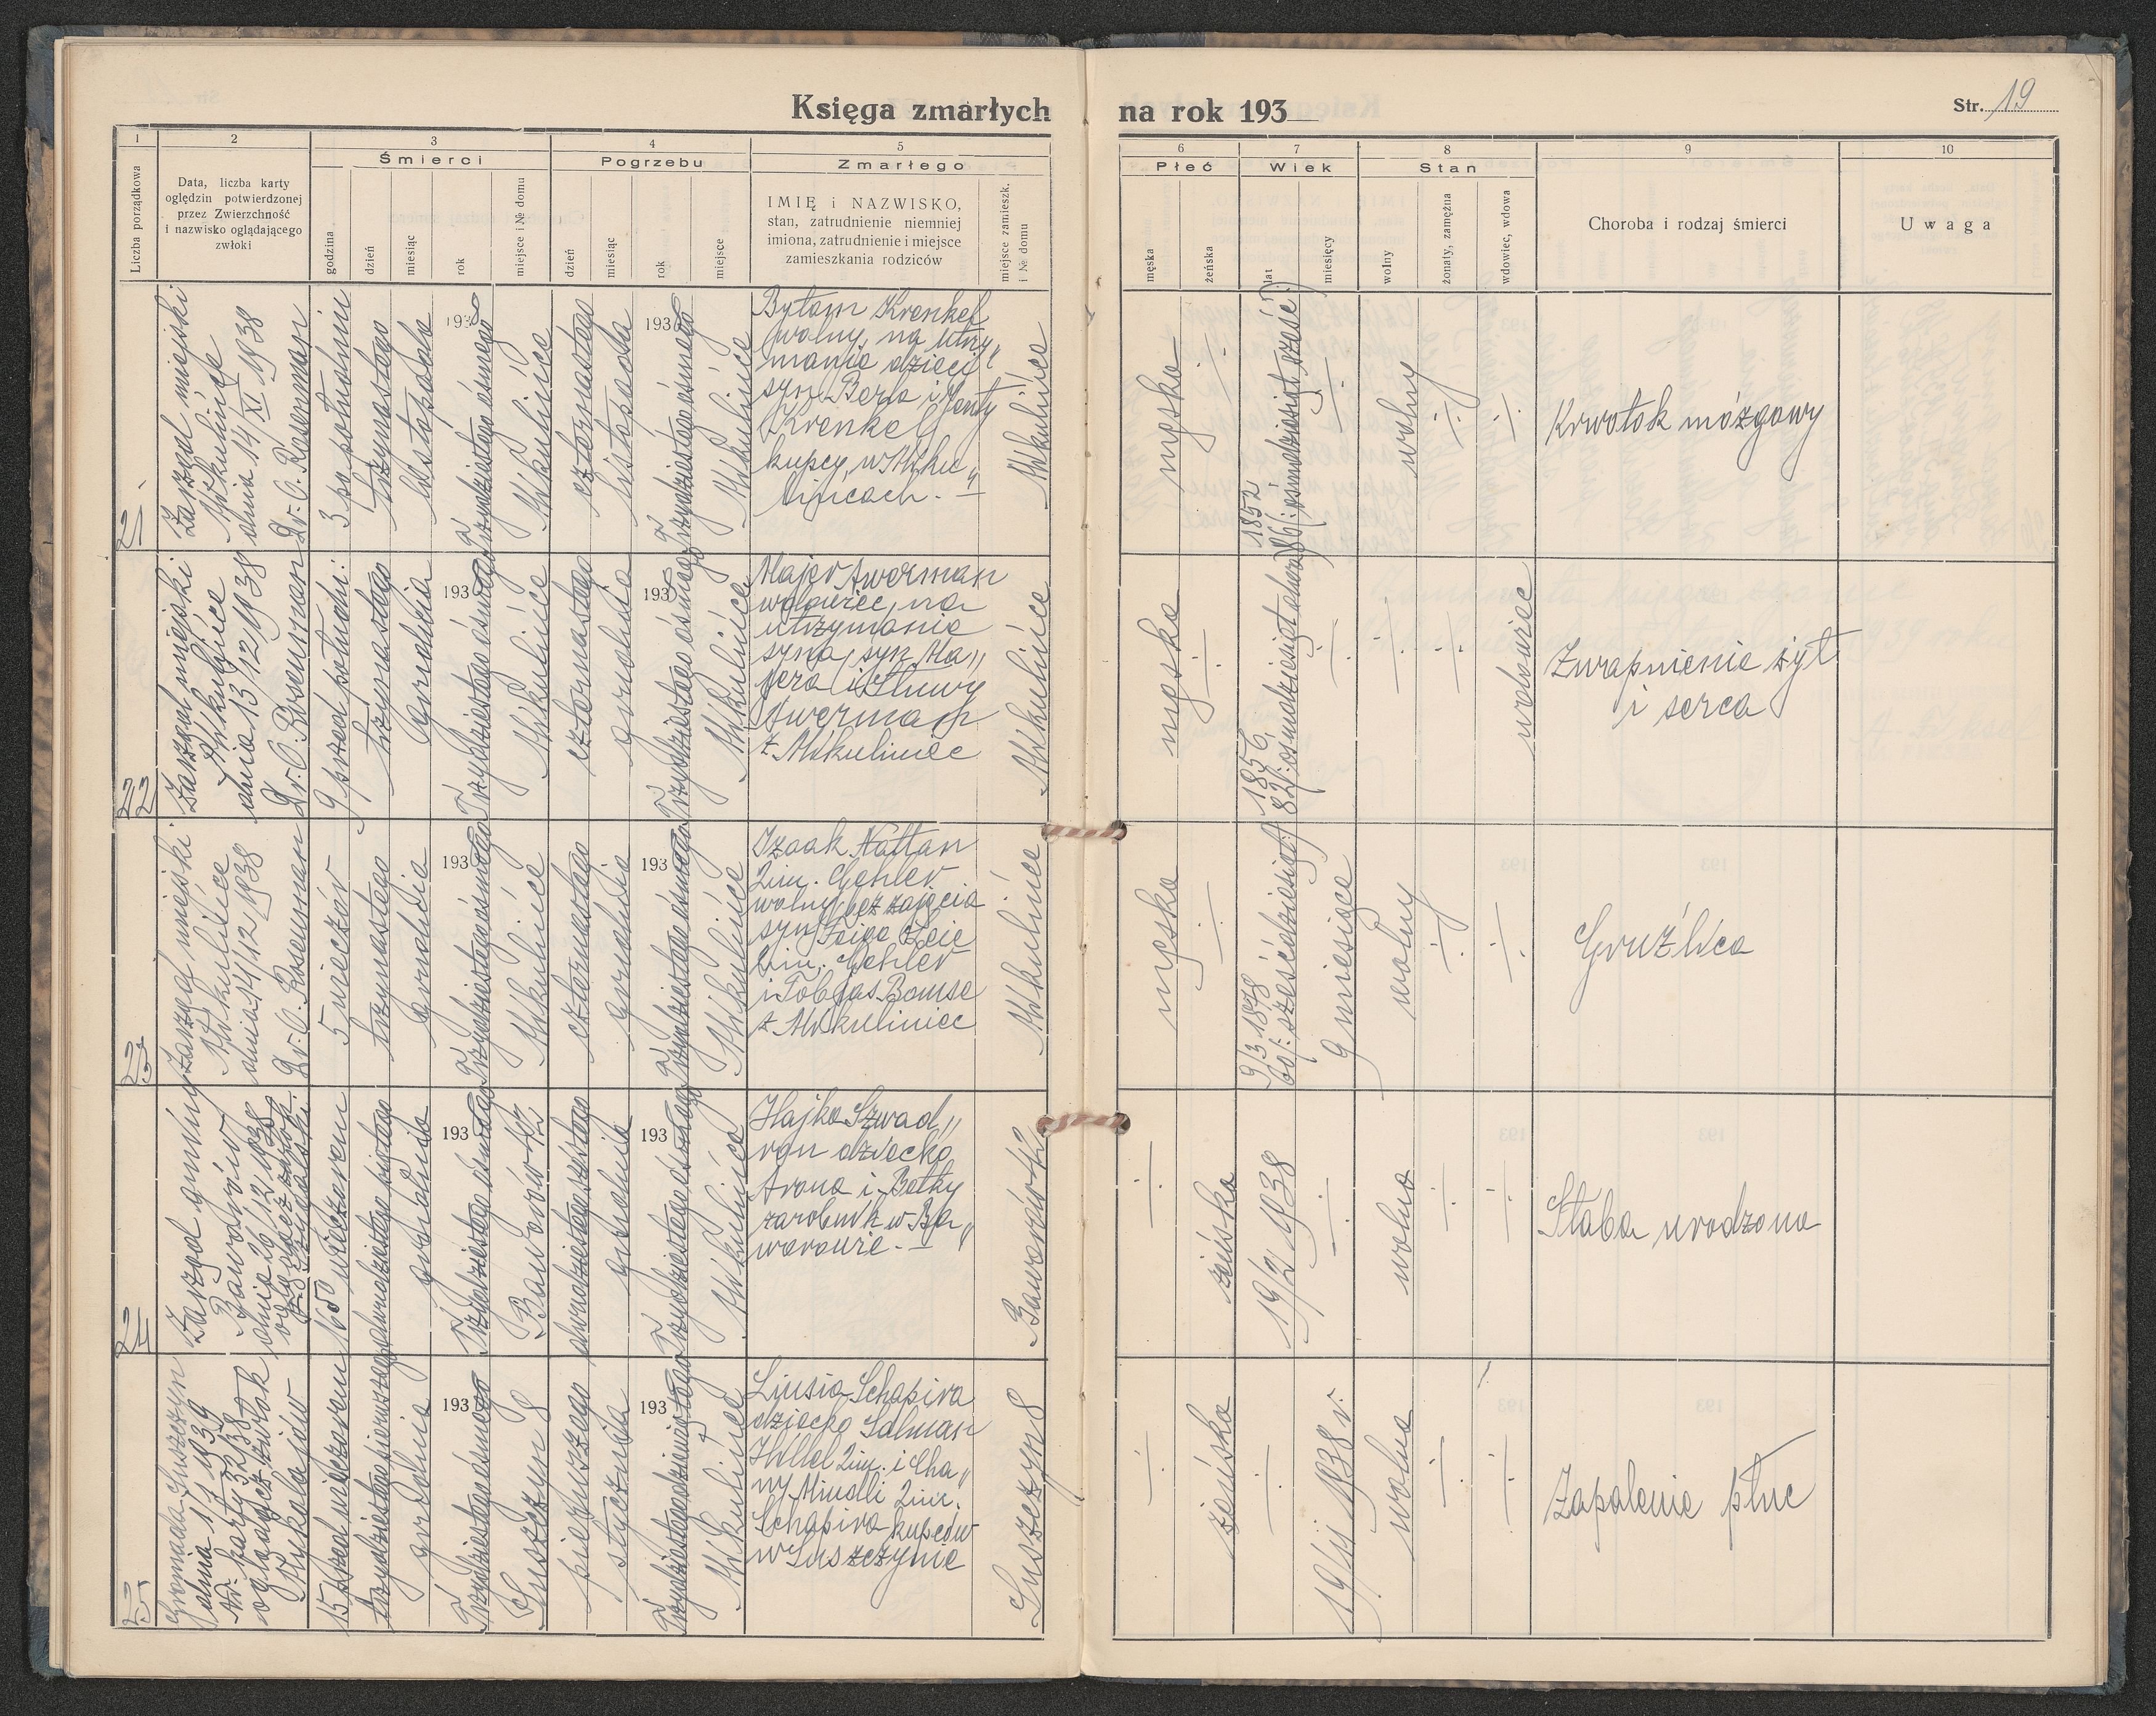 Księga zmarłych na rok 193
Str. 19
1
2
3
4
5
6
7
8
9
10
Liczba porządkowa
Data, liczba karty
oględzin potwierdzonej
przez Zwierzchność
i nazwisko oglądającego
zwłoki
Śmierci
godzina
dzień
miesiąc
rok
miejsce i № domu
Pogrzebu
dzień
miesiąc
rok
miejsce
Zmarłego
IMIĘ i NAZWISKO,
stan, zatrudnienie niemniej
imiona, zatrudnienie i miejsce
zamieszkania rodziców
miejsce zamieszk.
i № domu
Płeć
męska
żeńska
Wiek
lat
miesięcy
Stan
wolny
żonaty, zamężna
wdowiec, wdowa
Choroba i rodzaj śmierci
Uwaga
21
Zarząd miejski
Mikulińce
dnia 14/XI 1938
Dr. O. Rosenman
3 po południu
trzynastego
listopada
1938
Trzydziestego ósmego
Mikulińce
czternastego
listopada
1938
Trzydziestego ósmego
Mikulińce
Krenkel
wolny, na utrzy„
manie dzieci
syn Berla i
Krenkel
kupcy w Miku„
lińcach. —
Mikulińce
męska
÷
1852
86 (: ośmdziesiąt sześć :)
÷
wolny
÷
÷
Krwotok mózgowy
22
Zarząd miejski
Mikulińce
dnia 13/12 1938
Dr. O. Rosenman
9 przed połudn:
trzynastego
grudnia
1938
Trzydziestego ósmego
Mikulińce
czternastego
grudnia
1938
Trzydziestego ósmego
Mikulińce
Majer Awerman
wdowiec, na
utrzymanie
syna, syn Ma„
jera i
Awerman
z Mikuliniec
Mikulińce
męska
÷
1856
82 (: ośmdziesiąt dwa :)
÷
÷
÷
wdowiec
Zwapnienie żył
i serca
23
Zarząd miejski
Mikulińce
dnia 14/12 1938
Dr. O. Rosenman
5 wieczór
trzynastego
grudnia
1938
Trzydziestego ósmego
Mikulińce
czternastego
grudnia
1938
Trzydziestego ósmego
Mikulińce
Izaak Nattan
2im. Gehler
wolny, bez zajęcia
syn Feiga
2im. Gehler
i Tobjas Bomse
z Mikuliniec
Mikulińce
męska
÷
9/3 1878
60 (: sześćdziesiąt :)
9 miesiące
wolny
÷
÷
Gruźlica
24
Zarząd gminny
Baworów
dnia 26/12 1938
oglądacz zwłok
16 50 wieczorem
dwudziestego piątego
grudnia
1938
Trzydziestego ósmego
Baworów 42
dwudziestego szóstego
grudnia
1938
Trzydziestego ósmego
Mikulińce
Hajka Szwad„
ron dziecko
Arona i Betky
zarobnik w Ba„
worowie. —
Baworów 42
÷
żeńska
19/2 1938
÷
wolna
÷
÷
Słaba urodzona
25
Gromada Łuszczyn
dnia 1/1 1939
Nr. karty 32/38
oglądacz zwłok
15 przed wieczorem
trzydziestego pierwszego
grudnia
1938
Trzydziestego ósmego
Łuszczyn 8
pierwszego
stycznia
193
Trzydziestego dziewiątego
Mikulińce
Ljusia Schapira
dziecko Salman
Hillel 2im. i Cha„
ny Mindli 2im.
Schapira kupców
w Łuszczynie
Łuszczyn 8
÷
żeńska
÷
1938 r.
wolna
÷
÷
Zapalenie płuc